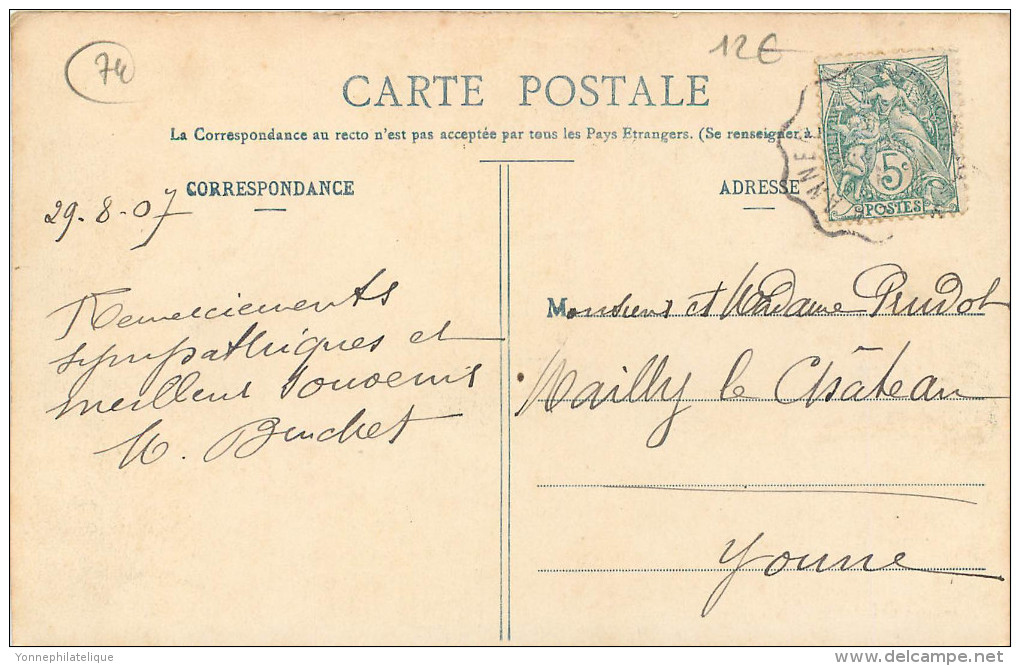 74
12€
CARTE POSTALE
La Correspondance au recto n'est pas acceptée par tous les Pays Etrangers. (Se renseigner à
CORRESPONDANCE
ADRESSE
5c
POSTES
29-8-07
Remerciements
sympathiques et
meilleurs souvenirs
Monsieur et Madame Prudot
Mailly le Château
Yonne
Yonnephilatelique
delcampe.net